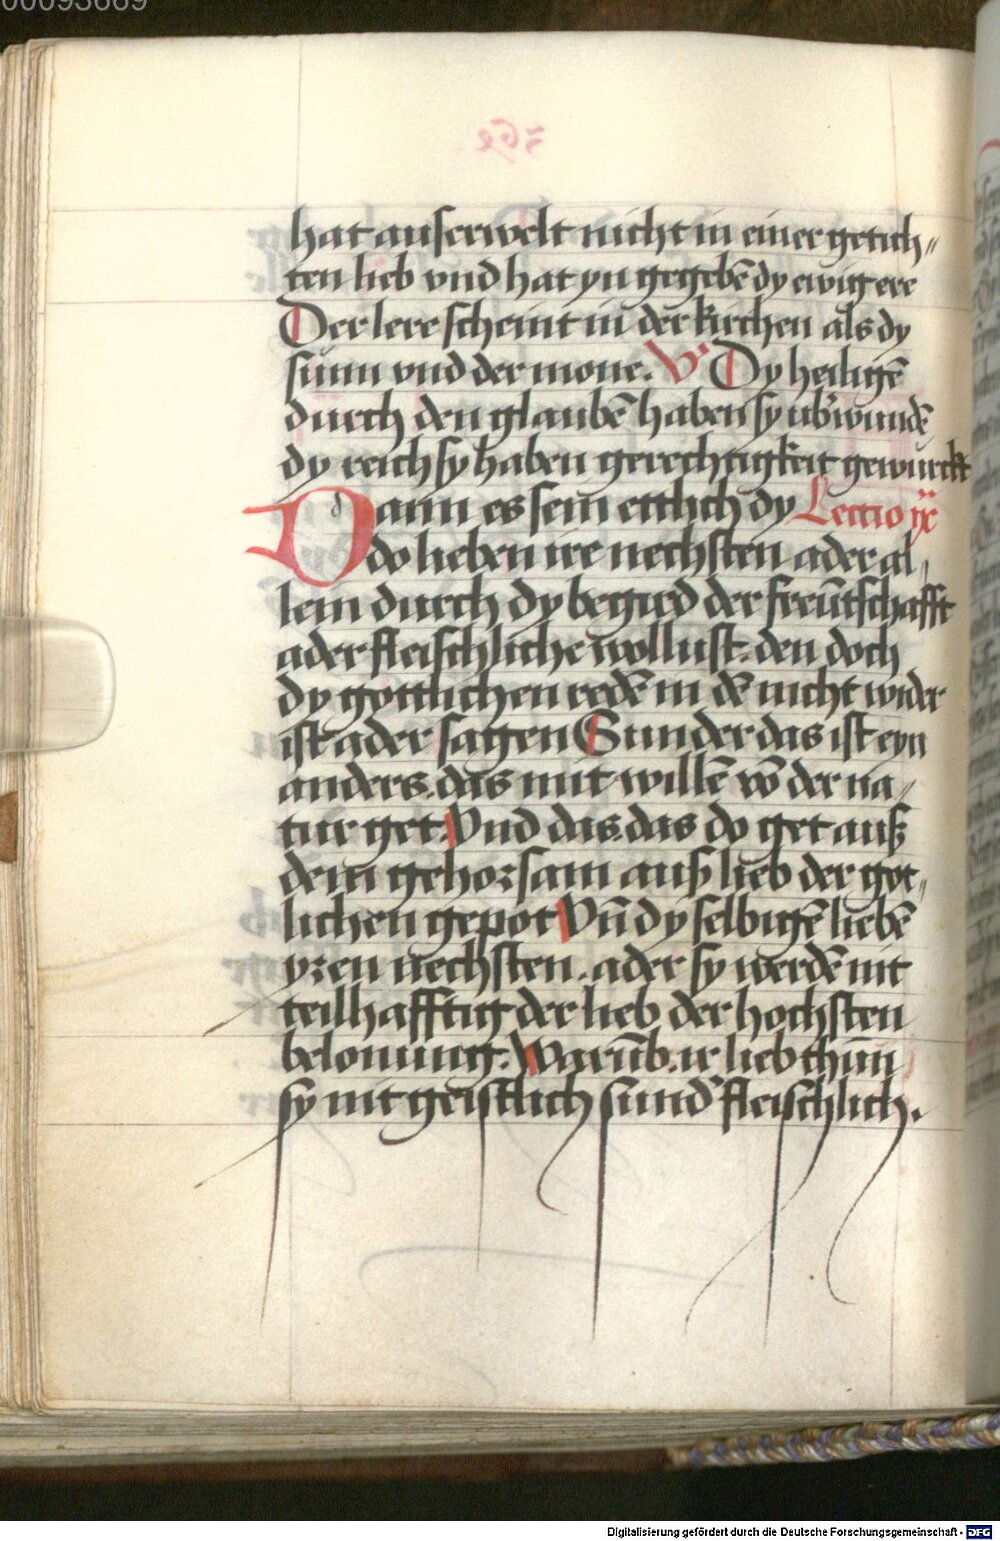 00093669
hat auserwelt nicht in einer getich〃
ten lieb vnd hat yn gegebē dy ewig ere
Der lere scheint in der kirchen als dy
sunn vnd der mone. V Dy heiligē
durch den glaubē haben sy vb'wundē
dy reich sy haben gerechtigkeit gewurckt
Dann es sein etlich dy Lectio ix
do lieben ire nechsten ader al〃
lein durch dy begird der freūtschafft
ader fleischliche wollust. den doch
dy gottlichen redē in dē nicht wider
ist ader sagen Sunder das ist eyn
anders. das mit willē vō der na〃
tur get. Vnd das. das do get auß
dem gehorsam auß lieb der got〃
lichen gepot Vn̄ dy selbigē liebē
yren nechsten. ader sy werdē nit
teilhafftig der lieb der hochsten
belonung. Warūb. ir lieb thun
sy nit geistlich sund' fleischlich.
Digitalisierung gefördert durch die Deutsche Forschungsgemeinschaft - DFG